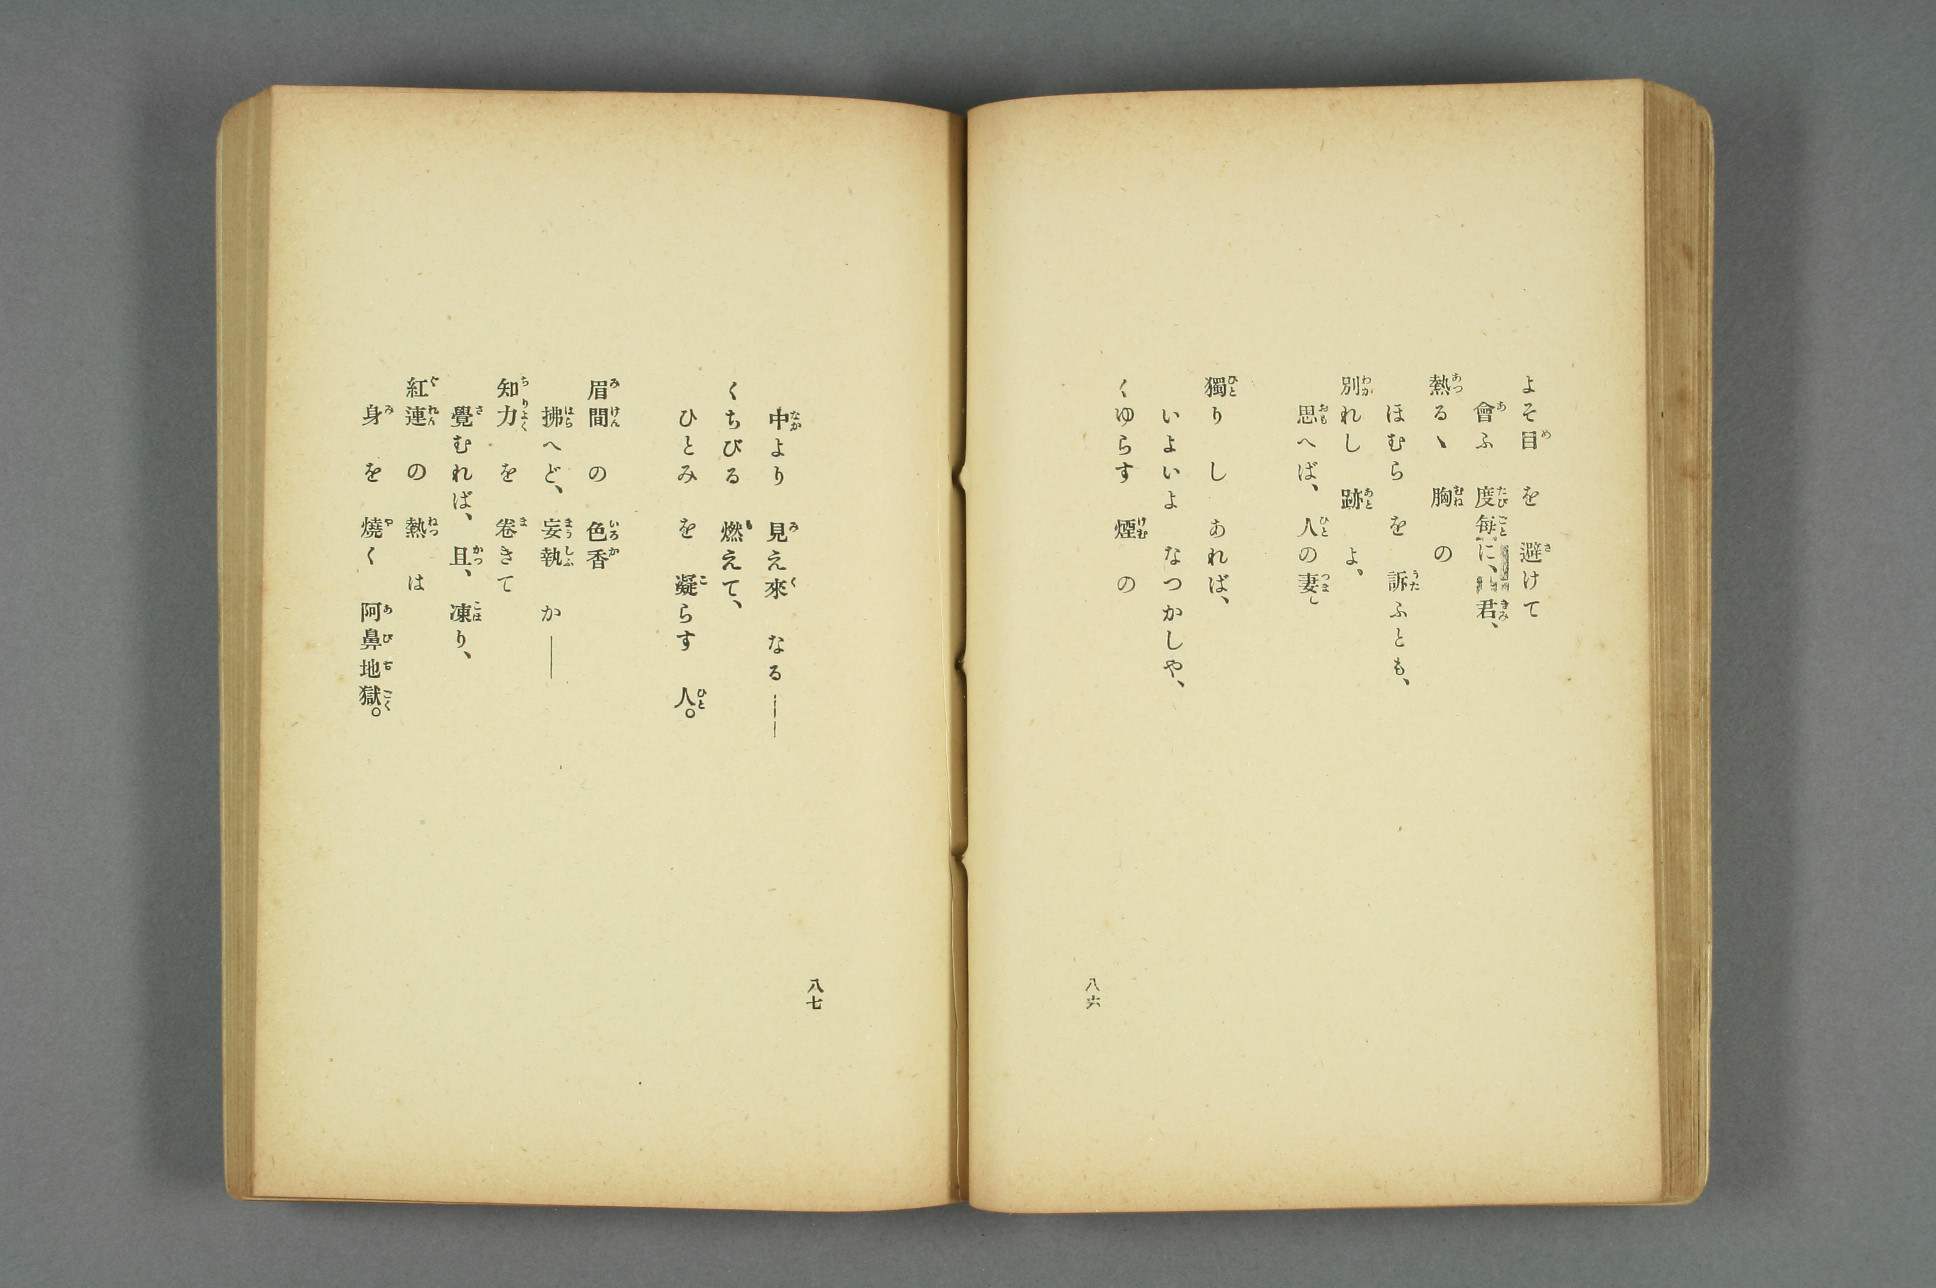 よそ目を避けて
會ふ度毎に、君、
熱るゝ胸の
ほむらを訴ふとも、
別れし跡よ、
思へば、人の妻。
獨りしあれば、
いよいよなつかしや、
くゆらす煙の
八六
中より見え來なる――
くちびる燃えて、
ひとみを凝らす人。
眉間の色香
拂へど、妄執か――
知力を卷きて
覺むれば、且、凍り、
紅連の熱は
身を燒く阿鼻地獄。
八七